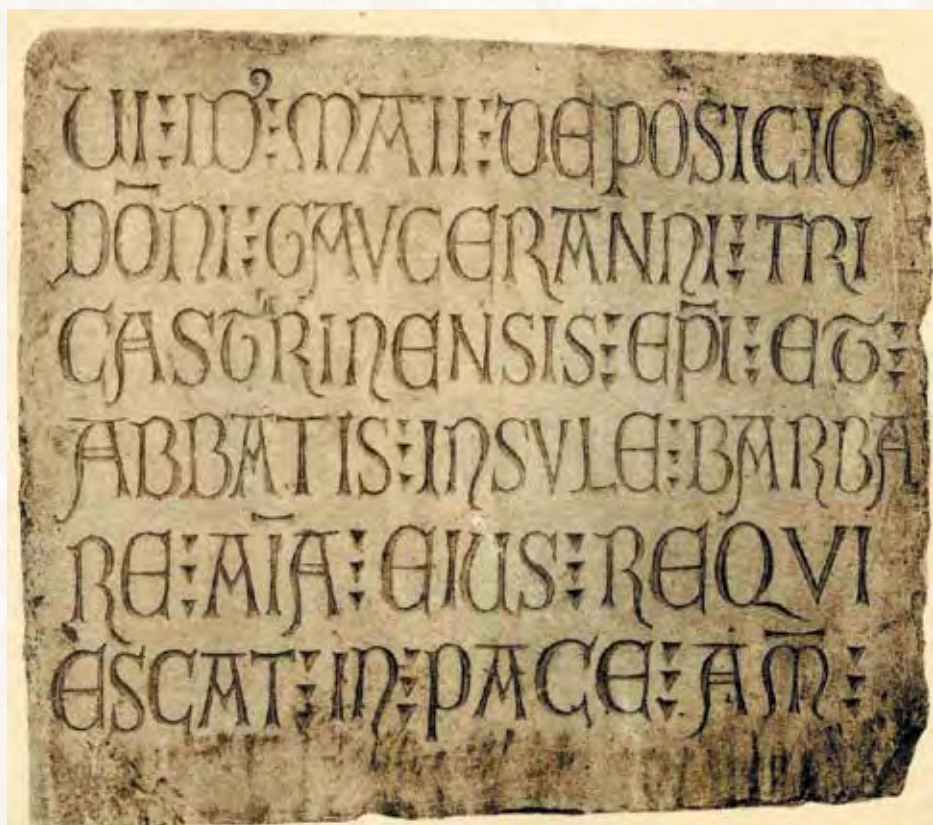 VI⁝ID'⁝MAII⁝DEPOSICIO
DŌNI⁝GAVCERANNI⁝TRI
CASTRINENSIS⁝EP̄I⁝ET⁝
ABBATIS⁝INSVLE⁝BARBA
RE⁝AĪA⁝EIUS⁝REQVI
ESCAT⁝IN⁝PACE⁝AM̄⁝